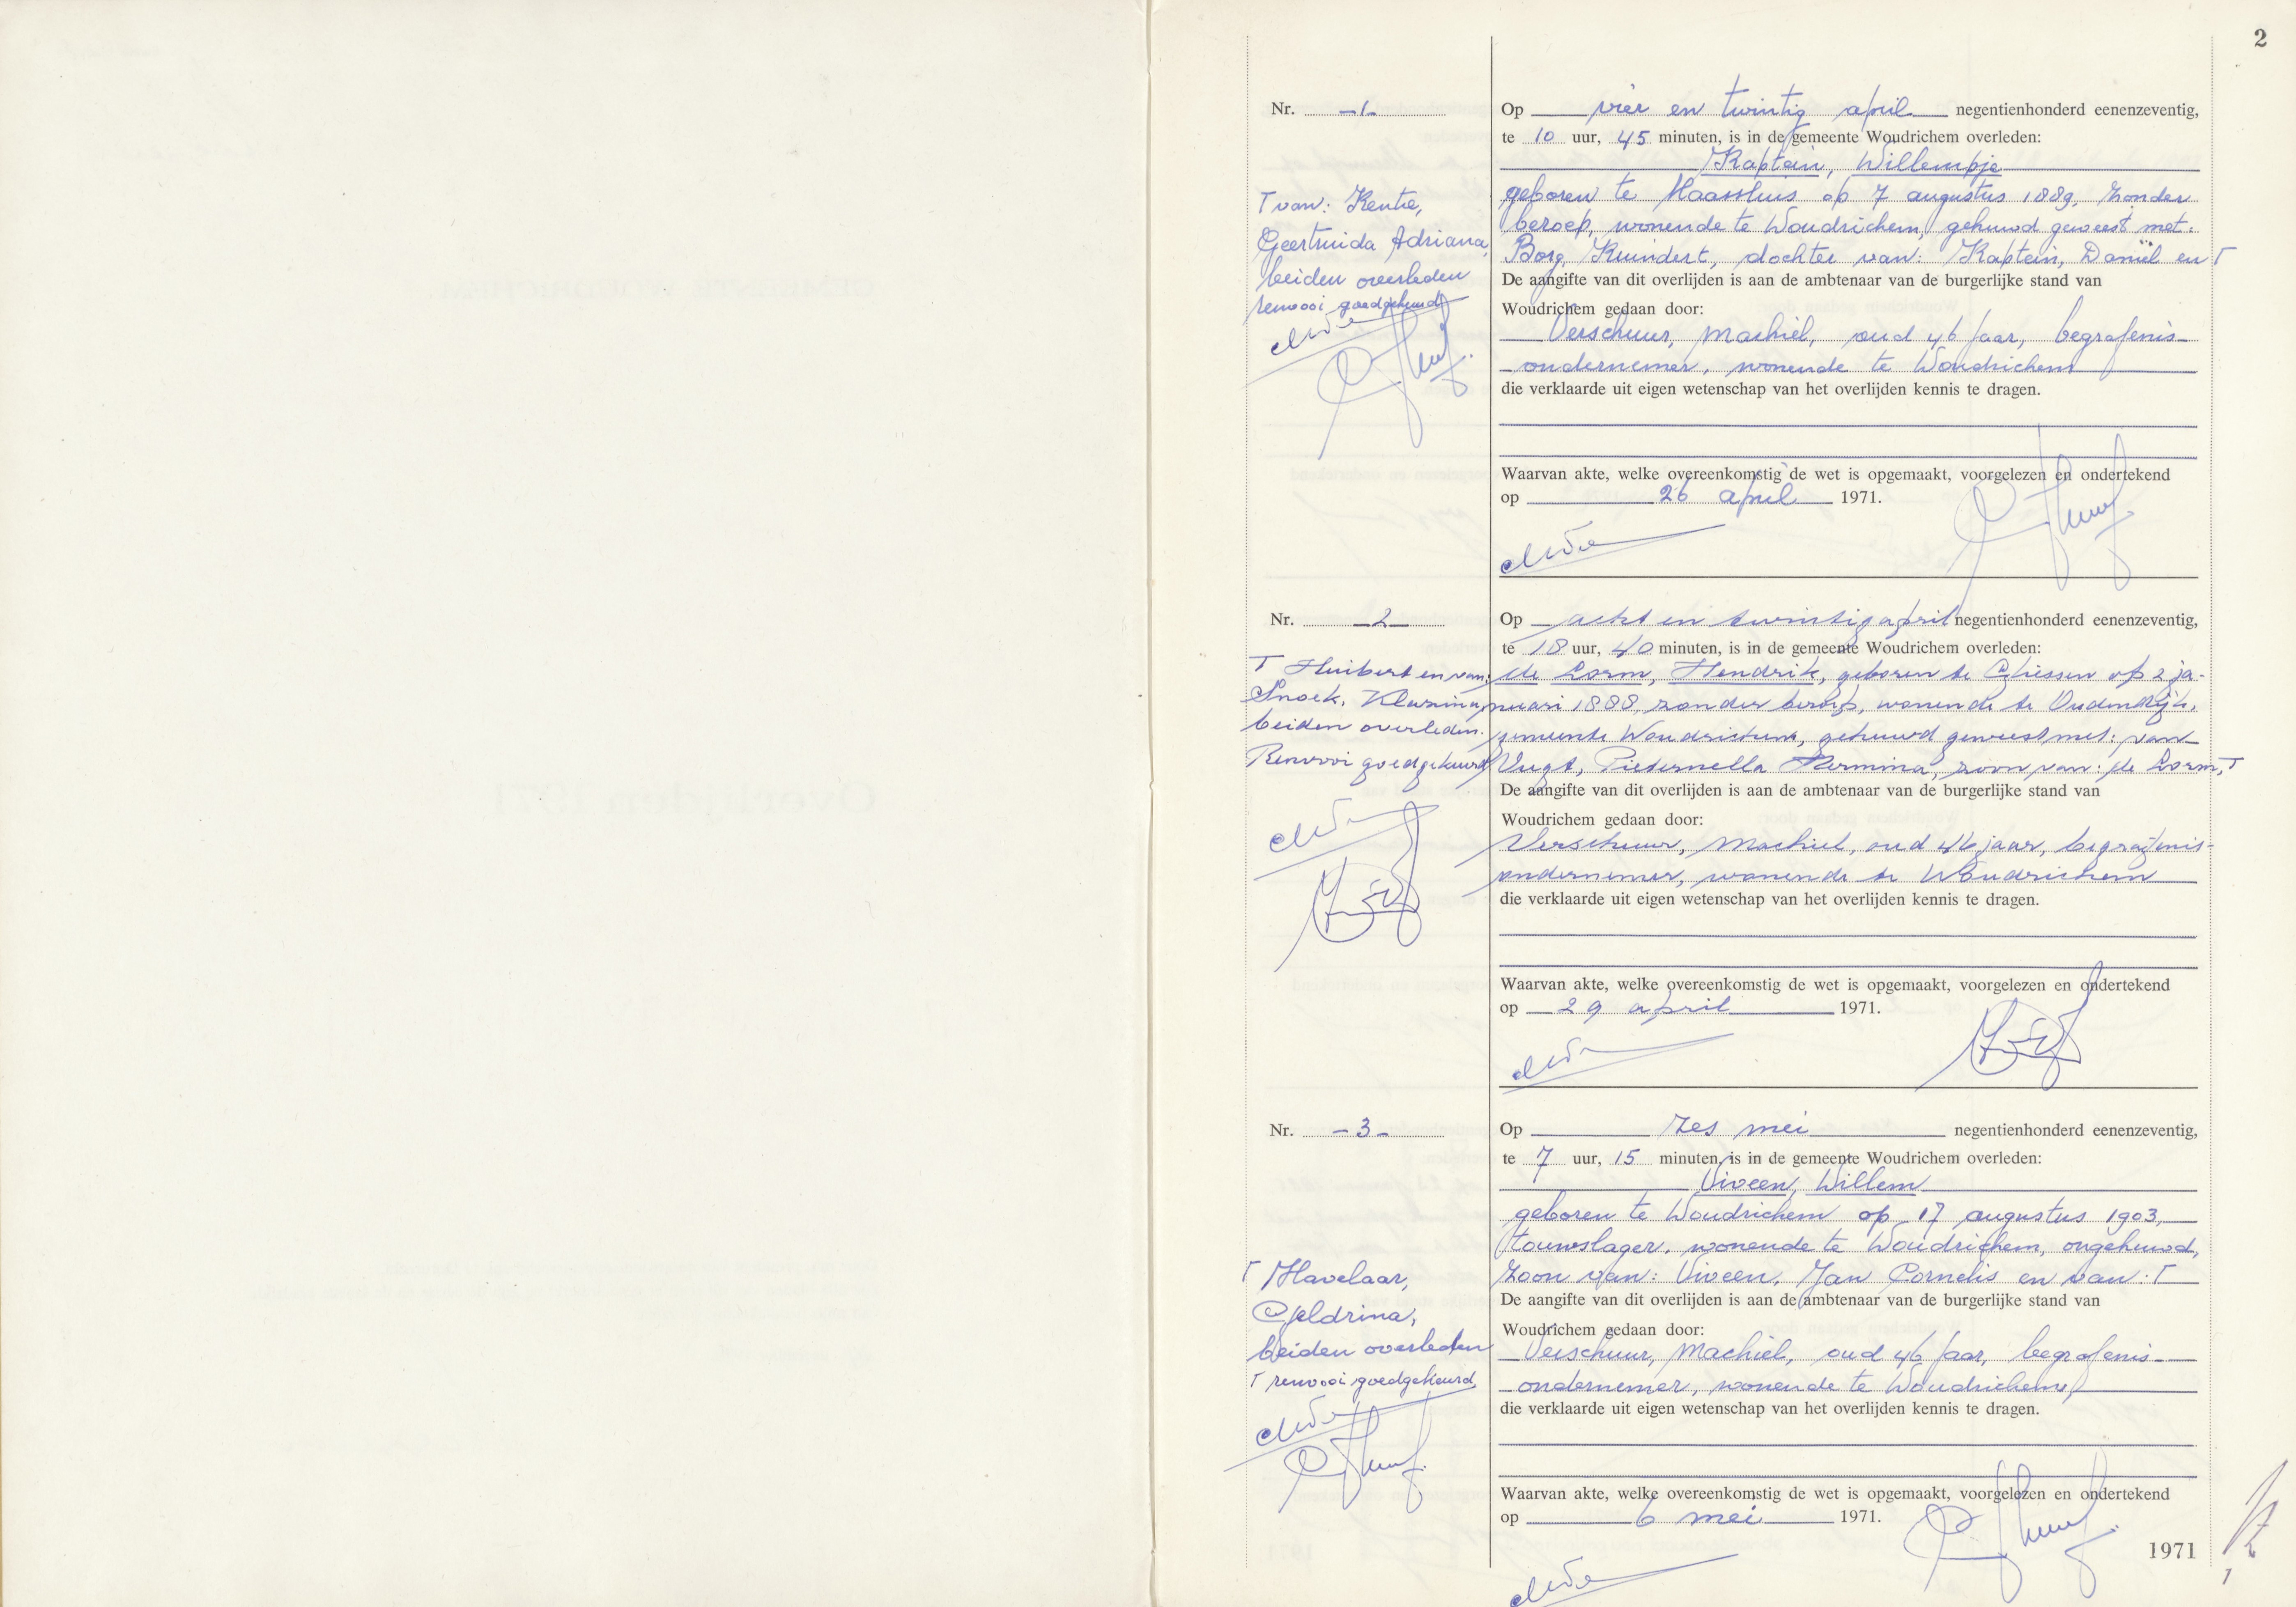 2
Nr. -1-
Op vier en twintig april negentienhonderd eenenzeventig,
te 10 uur, 45 minuten, is in de gemeente Woudrichem overleden:
Kaptein, Willempje
geboren te Maassluis op 7 augustus 1889, zonder
beroep, wonende te Woudrichem, gehuwd geweest met:
Borg, Kuindert, dochter van: Kaptein, Daniël en Γ
Γ van: Kentie,
Geertruida Adriana,
beiden overleden
renvooi goedgekeurd
De aangifte van dit overlijden is aan de ambtenaar van de burgerlijke stand van
Woudrichem gedaan door:
Verschuur, Machiel, oud 46 jaar, begrafenis-
ondernemer, wonende te Woudrichem
die verklaarde uit eigen wetenschap van het overlijden kennis te dragen.
Waarvan akte, welke overeenkomstig de wet is opgemaakt, voorgelezen en ondertekend
op 26 april 1971.
Nr. -2-
Op acht en twintig april negentienhonderd eenenzeventig,
te 18 uur, 40 minuten, is in de gemeente Woudrichem overleden:
de Lorm, Hendrik, geboren te Giessen op 2 ja-
nuari 1888, zonder beroep, wonende te Oudendijk,
gemeente Woudrichem, gehuwd geweest met: van
Vugt, Pieternella Hermina, zoon van: de Lorm, Γ
Γ Huibert en van:
Snoek, Klasina,
beiden overleden.
Renvooi goedgekeurd
De aangifte van dit overlijden is aan de ambtenaar van de burgerlijke stand van
Woudrichem gedaan door:
Verschuur, Machiel, oud 46 jaar, begrafenis-
ondernemer, wonende te Woudrichem
die verklaarde uit eigen wetenschap van het overlijden kennis te dragen.
Waarvan akte, welke overeenkomstig de wet is opgemaakt, voorgelezen en ondertekend
op 29 april 1971.
Nr. -3-
Op zes mei negentienhonderd eenenzeventig,
te 7 uur, 15 minuten, is in de gemeente Woudrichem overleden:
Viveen, Willem
geboren te Woudrichem op 17 augustus 1903,
touwslager, wonende te Woudrichem, ongehuwd,
zoon van: Viveen, Jan Cornelis en van: Γ
Γ Havelaar,
Geldrina,
beiden overleden
Γ renvooi goedgekeurd
De aangifte van dit overlijden is aan de ambtenaar van de burgerlijke stand van
Woudrichem gedaan door:
Verschuur, Machiel, oud 46 jaar, begrafenis-
ondernemer, wonende te Woudrichem
die verklaarde uit eigen wetenschap van het overlijden kennis te dragen.
Waarvan akte, welke overeenkomstig de wet is opgemaakt, voorgelezen en ondertekend
op 6 mei 1971.
1971